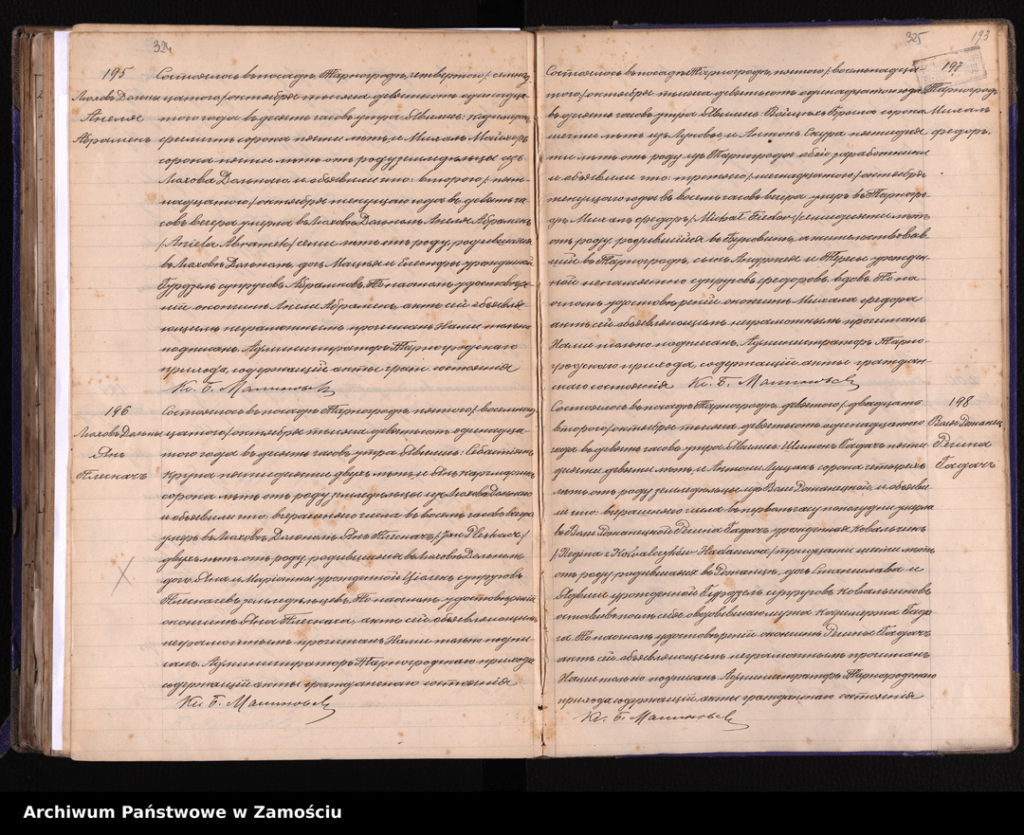 324
195
Ляховъ Дольны
Анеля
Абрамекъ
Состоялось въ посадѣ Тарногродѣ, четвертаго / семнад
цатого / октября тысяча девятьсотъ одиннадца
того года въ десять часовъ утра. Явились:
сорока пяти лѣтъ и Михалъ
сорока пяти лѣтъ отъ роду земледѣльцы изъ
Ляхова Дольнаго, и объявили что второго / пят
надцатого / октября текущаго года въ девять ча
совъ вечера умерла въ Ляховѣ Дольномъ Анеля Абрамекъ
/Aniela Abramek/ семи лѣтъ отъ роду, родившаяся
въ Ляховѣ Дольномъ, дочь Мацѣя и урожденной
супруговъ Абрамковъ. По настномъ удостовѣре
ніи окончины Анели Абрамекъ, актъ сей объявля
ющимъ неграмотнымъ прочитанъ Нами только
подписанъ. Администраторъ Тарногродскаго
прихода, содержащій акты гражд. состоянія
Кс. Б. Малиновск
196
Ляховъ Дольны
Янъ
Плескачъ
Состоялось въ посадѣ Тарногродѣ, пятого / восемнад
цатого / октября тысяча девятьсотъ одиннадца
того года въ десять часовъ утра. Явились: Себастіянъ
Крупа пятидесяти двухъ лѣтъ и Янъ
сорока лѣтъ отъ роду земледѣльцы изъ Ляхова Дольнаго
и объявили что вчерашняго числа въ восемь часовъ вечера
умеръ въ Ляховѣ Дольномъ Янъ Плескачъ /Jan Pleskacz/
двухъ лѣтъ отъ роду, родившійся въ Ляховѣ Дольномъ
Яна и Маріанны урожденной супруговъ
Плескачевъ земледѣльцевъ. По настномъ удостовѣреніи
окончины Яна Плескача, актъ сей объявляющимъ
неграмотнымъ прочитанъ Нами только подпи
санъ. Администраторъ Тарногродскаго прихода
содержащій акты гражданскаго состоянія
Кс. Б. Малиновск
325
193
197
Тарногродъ
Михалъ
Федоръ
Состоялось въ посадѣ Тарногродѣ, пятого / восемнадца
того / октября тысяча девятьсотъ одиннадцатого года
въ десять часовъ утра. Явились: сорока
шести лѣтъ изъ и Антонъ пятидеся
ти лѣтъ отъ роду изъ Тарногрода оба заработники
и объявили что третяго / шестнадцатого / октября
текущаго года въ восемь часовъ вечера умеръ въ Тарногро
дѣ Михалъ Федоръ /Michał Fiedor/ семидесяти лѣтъ
отъ роду, родившійся въ Буковинѣ, а жительствовав
шій въ Тарногродѣ, сынъ Андрея и Терезы урожден
ной супруговъ Федоровъ, вдовъ. По на
стномъ удостовѣреніи окончины Михала Федора
актъ сей объявляющимъ неграмотнымъ прочитанъ
Нами только подписанъ. Администраторъ Тарно
гродскаго прихода, содержащій акты граждан
скаго состоянія Кс. Б. Малиновск
198
Воля Рожанец.
Регина
Гадачъ
Состоялось въ посадѣ Тарногродѣ, девятого / двадцать
второго / октября тысяча девятьсотъ одиннадцатого
года въ девять часовъ утра. Явились: Шимонъ Гадачъ пяти
десяти девяти лѣтъ, и Антони Луцанъ сорока четырехъ
лѣтъ отъ роду земледѣльцы изъ Воли Рожанецкой, и объяви
ли что вчерашняго числа въ первомъ часу пополудни умерла
въ Воли Рожанецкой Регина Гадачъ урожденная Ковальчикъ
/Regina z Kowalczyków Hadaczowa/ тридцати шести лѣтъ
отъ роду, родившаяся въ Рожанцѣ, дочь Станислава и
Ядвиги урожденной супруговъ Ковальчиковъ
оставивъ послѣ себя овдовѣвшаго мужа Казимержа Гада
ча. По настномъ удостовѣреніи окончины Регины Гадачъ
актъ сей объявляющимъ неграмотнымъ прочитанъ
Нами только подписанъ. Администраторъ Тарногродскаго
прихода содержащій акты гражданскаго состоянія
Кс. Б. Малиновск
Archiwum Państwowe w Zamościu